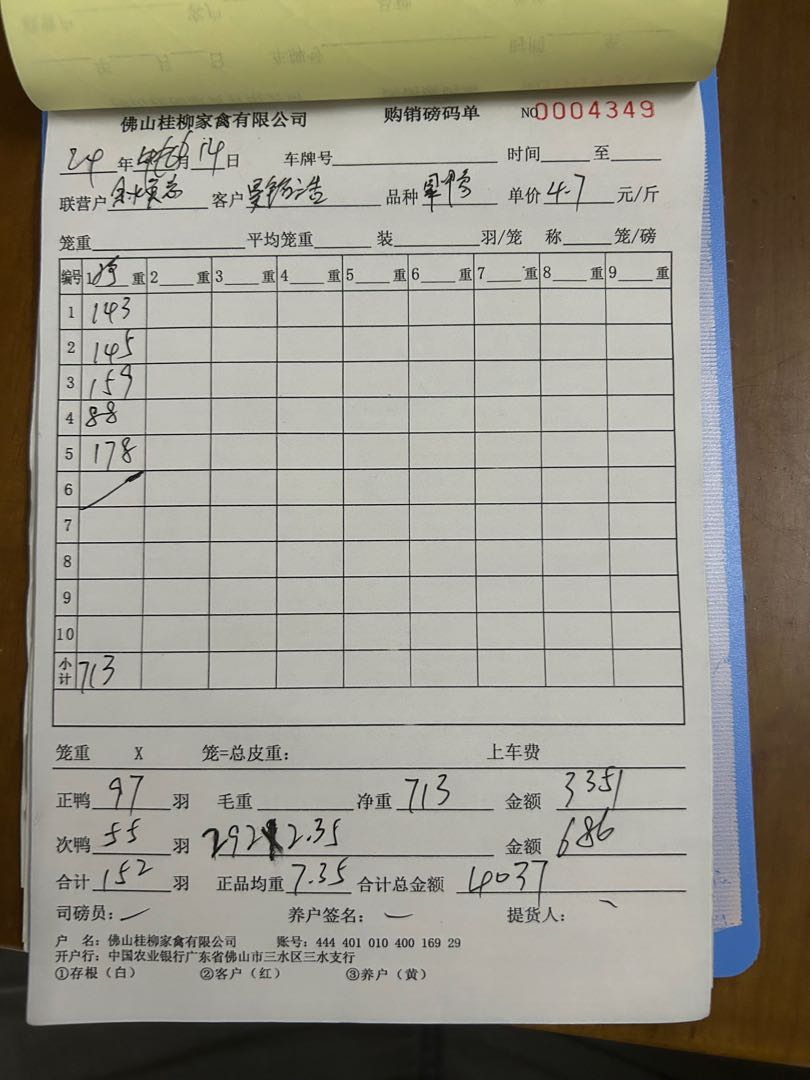 佛山桂柳家禽有限公司 购销磅码单 NO 0004349
24 年 月 14 日 车牌号 时间 至
联营户 客户 品种 单价 4.7 元/斤
笼重 平均笼重 装 羽/笼 称 笼/磅
编号 1 重 2 重 3 重 4 重 5 重 6 重 7 重 8 重 9 重
1 143
2 145
3 159
4 88
5 178
6
7
8
9
10
小计 713
笼重 X 笼=总皮重: 上车费
正鸭 97 羽 毛重 净重 713 金额 3351
次鸭 55 羽 292 X 2.35 金额 686
合计 152 羽 正品均重 7.35 合计总金额 4037
司磅员: 养户签名: 提货人:
户 名: 佛山桂柳家禽有限公司 账号: 444 401 010 400 169 29
开户行: 中国农业银行广东省佛山市三水区三水支行
①存根(白) ②客户(红) ③养户(黄)